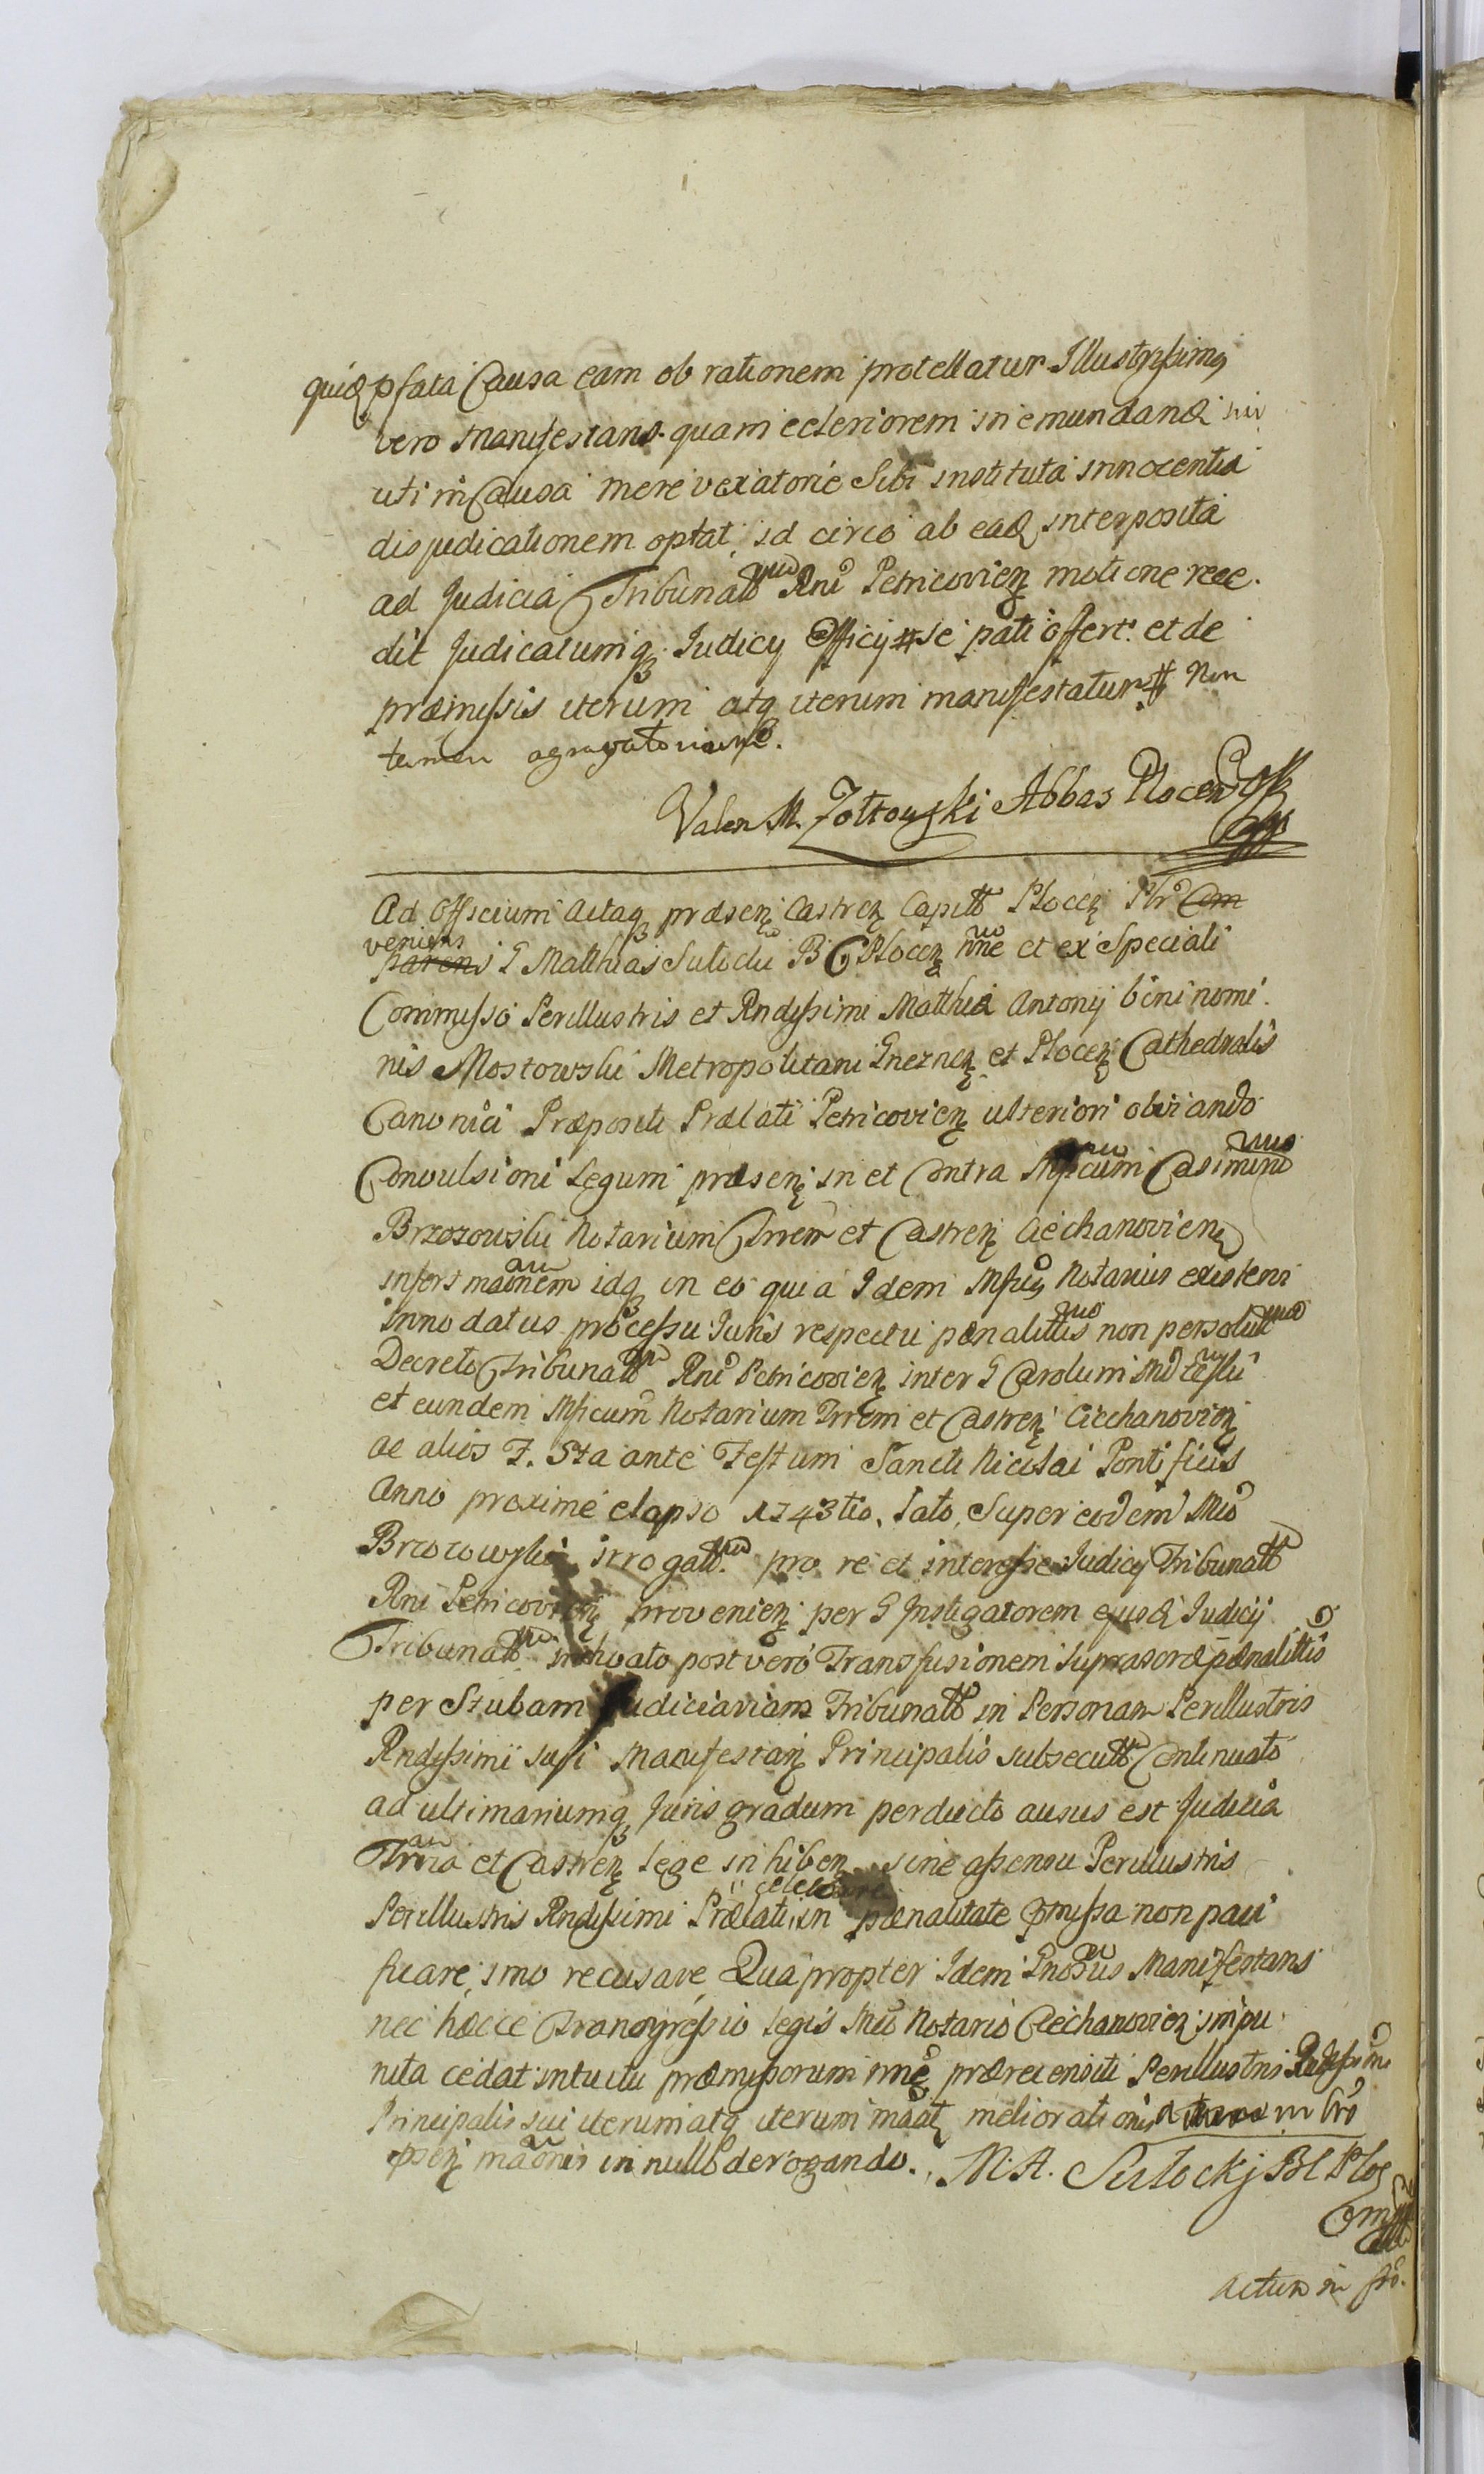 quia pfata Causa eam ob rationem protellatur Illustrissimus
vero Manifestans quam celeriorem in emundanda sui
uti in Causa mere vexatorie Sibi instituta innocentia
disjudicationem optat, id circo ab eadem interposita
ad Judicia Tribunal Rni Petricovien motione rece.
dit Judicatumq Judicy Officy # se pati offert et de
præmissis iterum atq iterum manifestatur # Non
tamen agravatorium.
Valen M. Zołtowski Abbas Plocen
Ad Officium Actaq præsen Castren Capitt Plocen Plr Com
veniens
parens G Matthias Sulocki B G Plocen nne et ex Speciali
Commisso Perillustris et Rndissimi Matthiæ Antonij bini nomi.
nis Mostowski Metropolitani Gneznen et Plocen Cathedralis
Canonici Præpositi Prælati Petricovien ulteriori obviando
Convulsioni Legum præsen in et Contra Mficum Casimirum
Brzozowski Notarium Trrem et Castren Ciechanovien
infert maonem idq in eo quia Idem Mficus Notarius existens
innodatus processu Juris respectu pænalittis non persolutt
Decreto Tribunatt Rni Petricovien inter G Carolum
et eundem Mficum Notarium Trrem et Castren Ciechanovien
ac alios F. 5ta ante Festum Sancti Nicolai Pontificis
Anno proxime elapso 1743tio. lato, Super eodem Mco
Brzozowski irrogatt. pro re et interesse Judicij Tribunatt
Rni Petricovien provenien per G Instigatorem ejusd Judicij
Tribunatt inchoato post vero Transfusionem supra pænalittis
per Stubam Judiciariam Tribunatt in Personam Perillustris
Rndissimi sui Manifestan Principalis subsecutt Continuato
ad ultimariumq Juris gradum perducto ausus est Judicia
Trria et Castren Lege inhiben sine assensu Perillustris
celebrare
Perillustris Rndissimi Prælati, in pænalitate pmissa non paci
ficare, imo recusare, Qua propter Idem Gnosus Manifestans
nec hæcce Transgressio Legis Mco Notario Ciechanovien impu
nita cedat intuitu præmissorum nne prærecensiti Perillustris Rndissimi
Principalis sui iterum atq iterum maat melioratione
psen maonis in nullo derogando. M. A. Sulocki BC Ploc
actum in